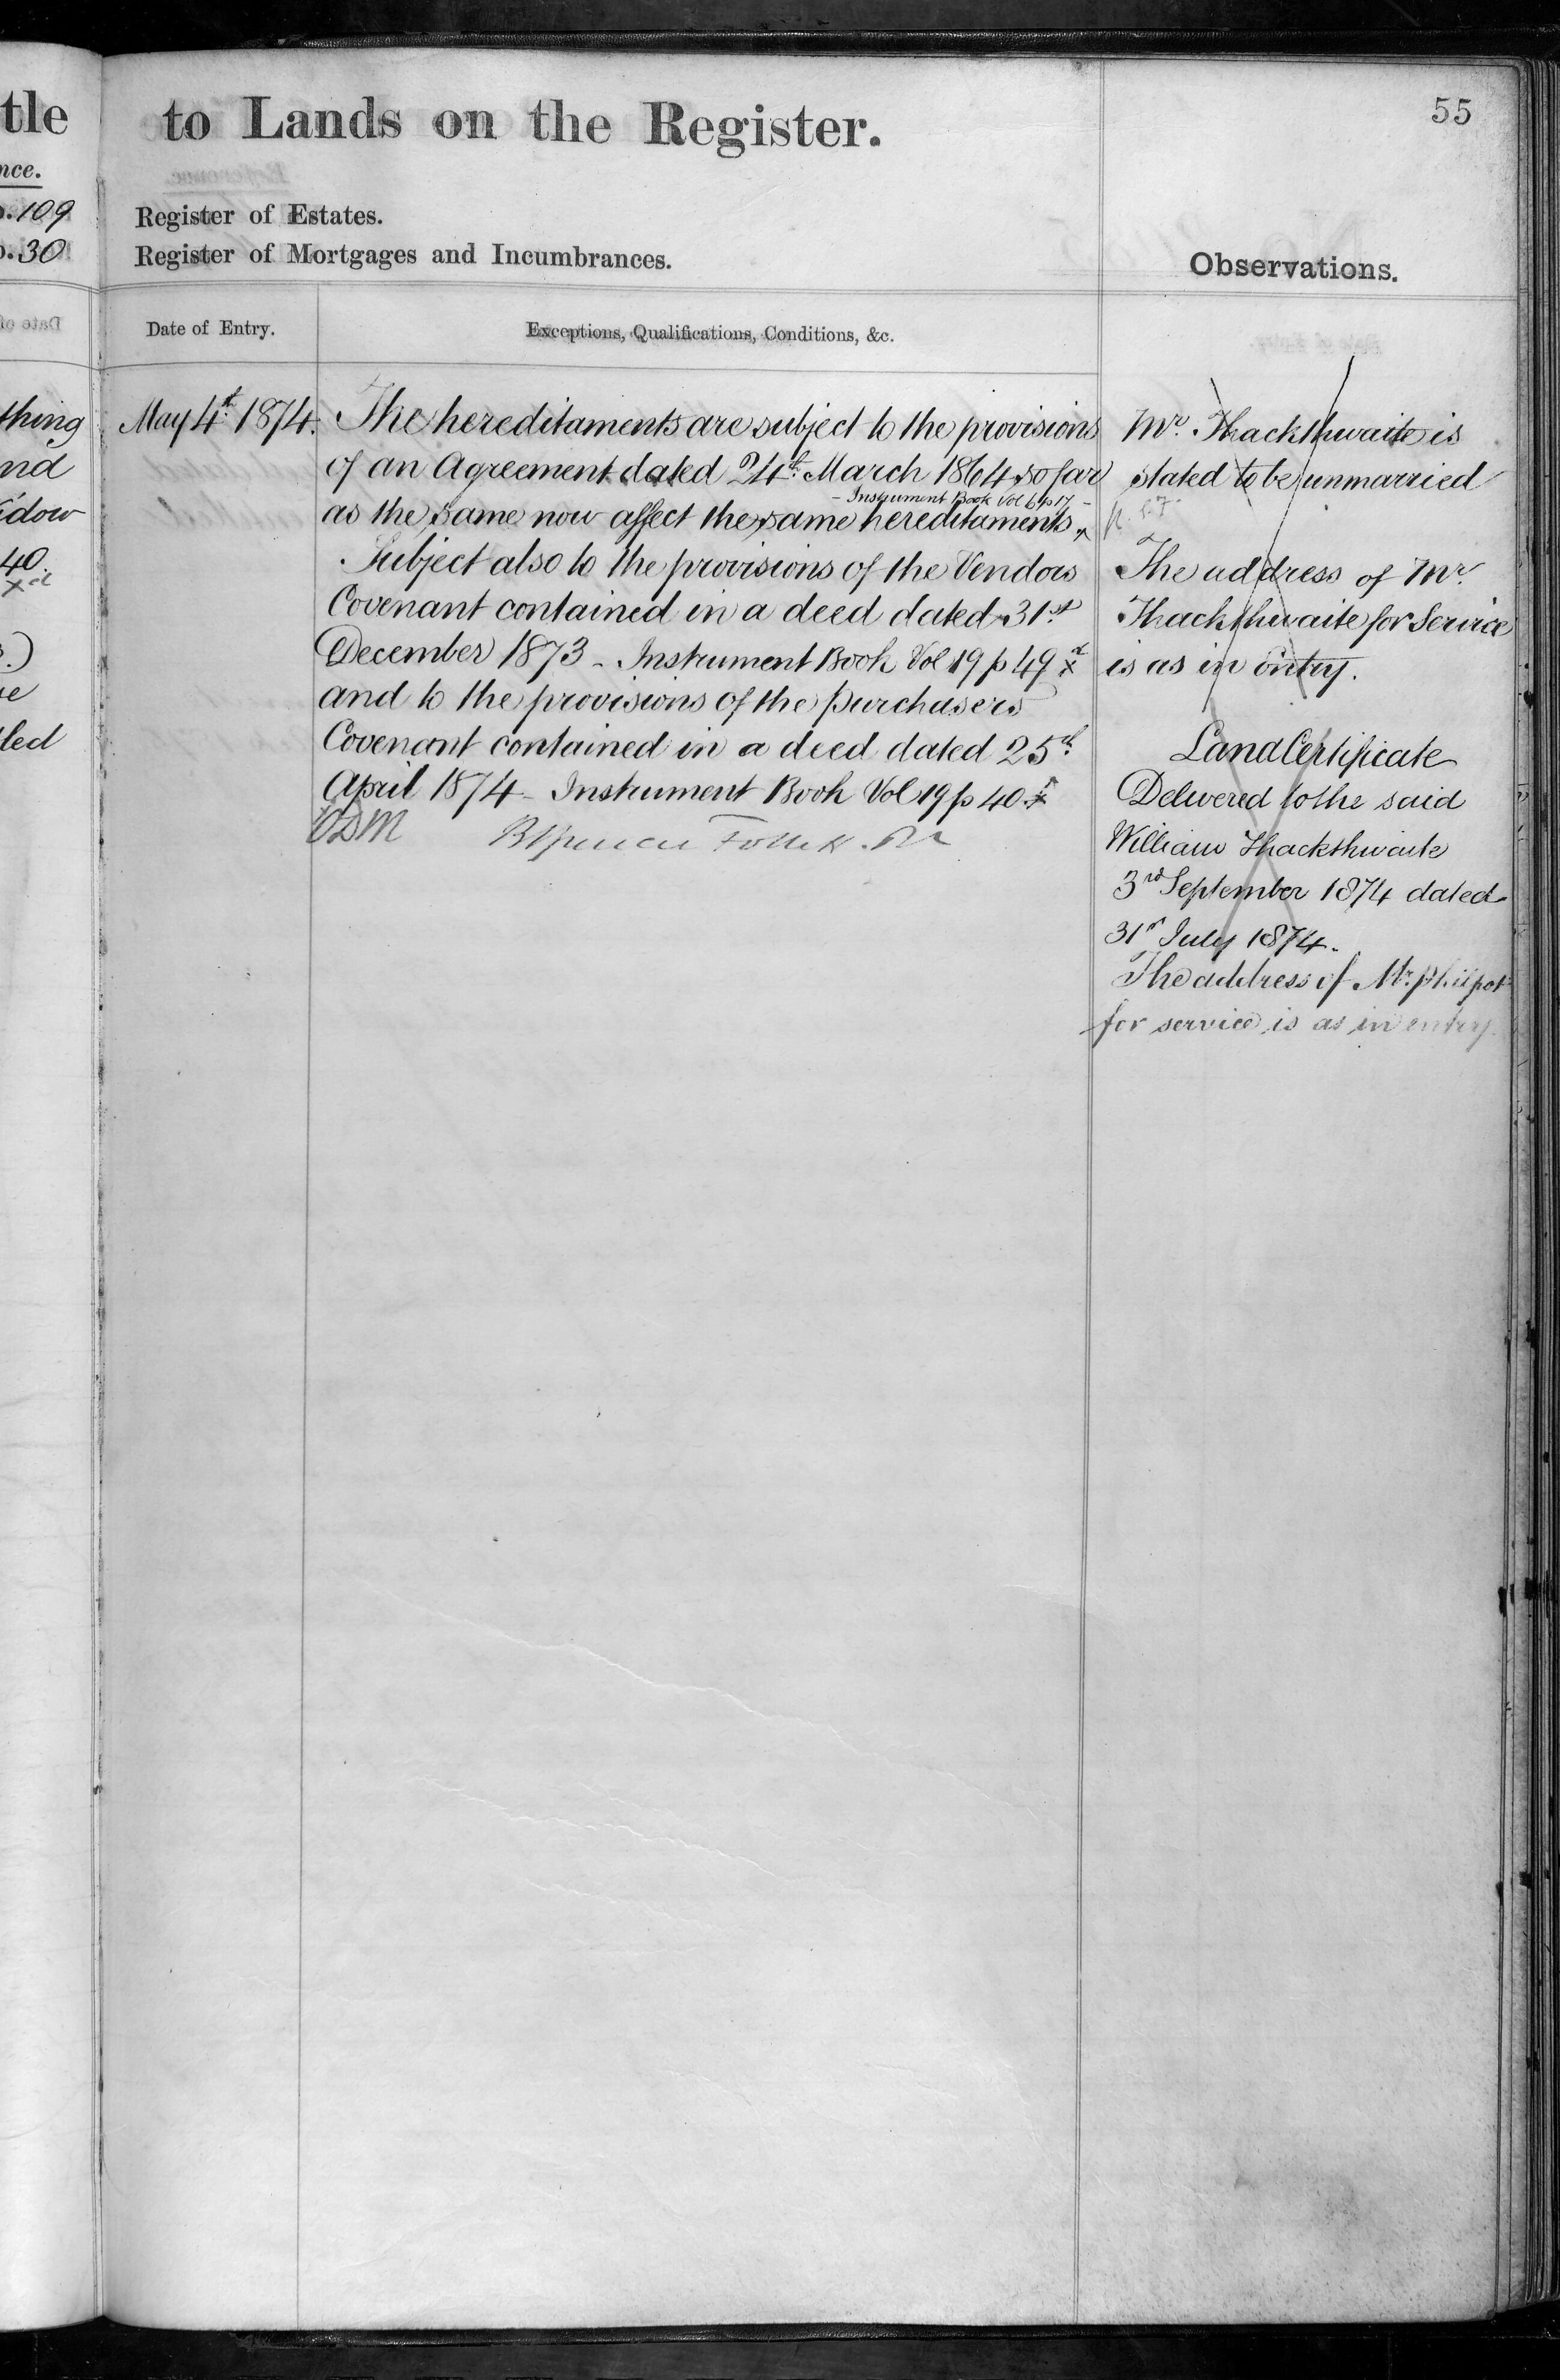 tle
nce.
109
30
thing
nd
idow
40.
xd
led
to Lands on the Register.
55
Register of Estates.
Register of Mortgages and Incumbrances.
Observations.
Date of Entry.
Exceptions, Qualifications, Conditions, &c.
May 4th 1874.
The hereditaments are subject to the provisions
of an Agreement dated 24th March 1864 so far
- Instrument Book Vol 6 p 17 -
as the same now affect the same hereditaments
Subject also to the provisions of the Vendors
Covenant contained in a deed dated 31st
December 1873 - Instrument Book Vol 19 p 49 xd
and to the provisions of the purchasers
Covenant contained in a deed dated 25th
April 1874 - Instrument Book Vol 19 p 40 xd
Mr. Thackthwaite is
stated to be unmarried
The address of Mr.
Thackthwaite for Service
is as in entry.
Land Certificate
Delivered to the said
William Thackthwaite
3rd September 1874 dated
31st July 1874.
The address of Mr. Philpot
for service is as in entry.